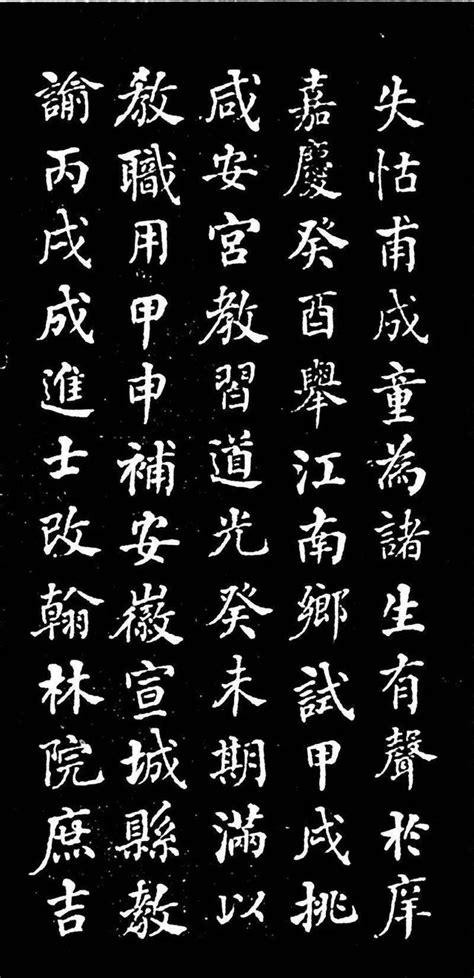 失怙甫成童為諸生有聲於庠
嘉慶癸酉舉江南鄉試甲戌挑
咸安宮教習道光癸未期滿以
教職用甲申補安徽宣城縣教
諭丙戌成進士改翰林院庶吉